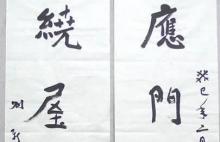 應門
癸巳年二月
繞屋